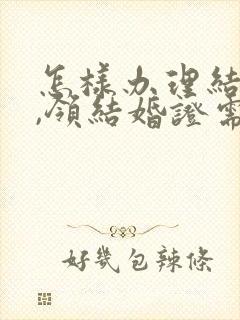 怎樣办理結
,領結婚證需
好幾包辣條